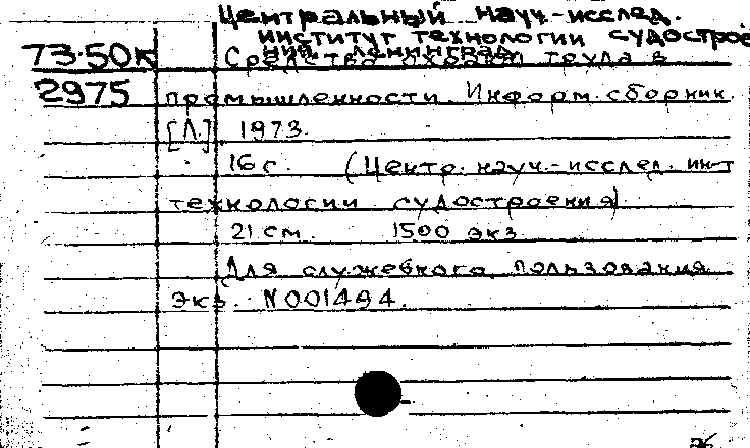 Центральный науч.-исслед.
институт технологии судострое
ния. Ленинград.
73-50к Средства охраны труда в
2975 промышленности. Информ. сборник.
[Л.] 1973.
16 с. (Центр. науч.-исслед. ин-т
технологии судостроения)
21 см. 1500 экз.
Для служебного пользования
Экз. N001494.